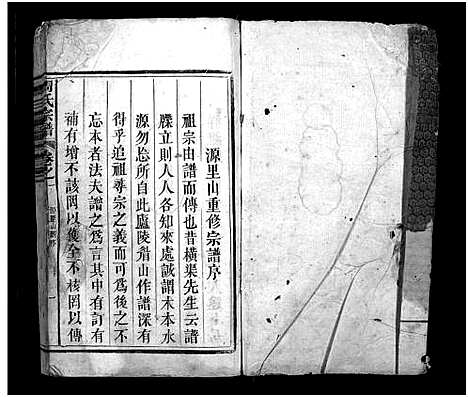 源里山重修宗譜序
祖宗由譜而傳也昔橫渠先生云譜
牒立則人人各知來處誠謂木本水
源勿忘所自此廬陵眉山作譜深有
得乎追祖尊宗之義而可爲後之不
忘本者法夫譜之爲言其中有訂有
補有增不該罔以獲全不核罔以傳
氏宗譜